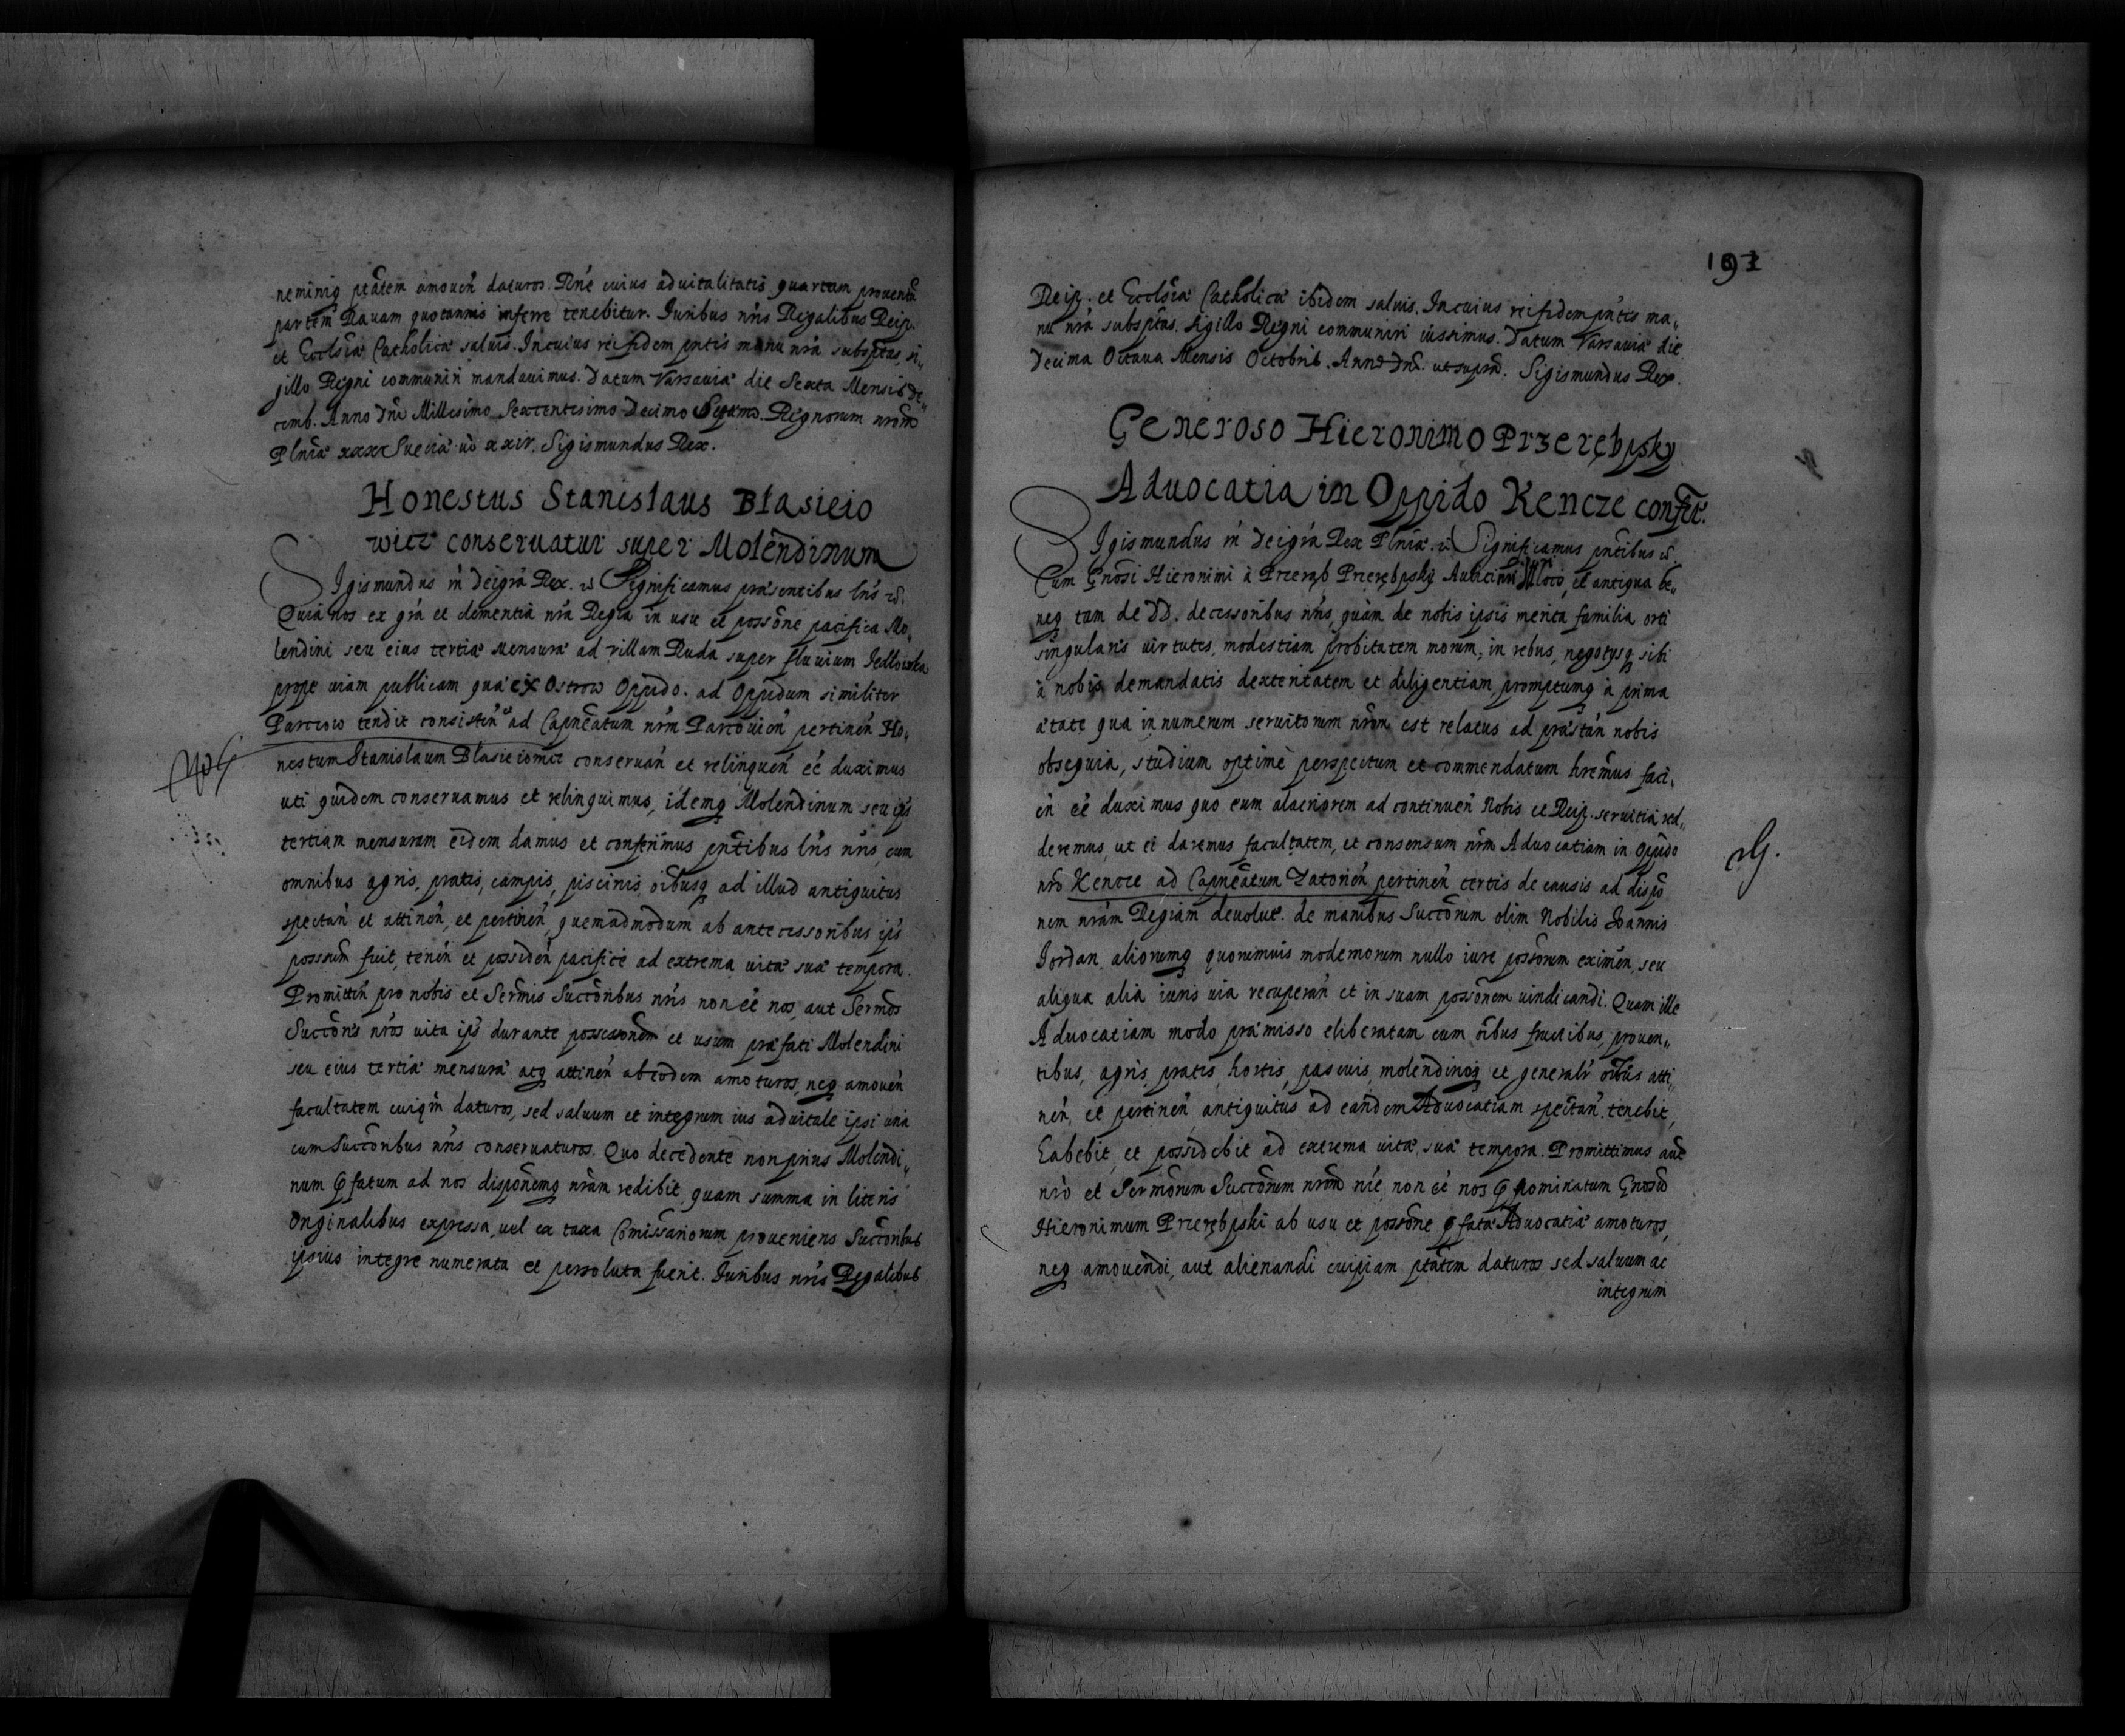 neminiq ptatem amouen daturos. Rne cuius aduitalitatis quartam prouentu
partem Rauam quotannis inferre tenebitur. Iuribus nris Regalibus Reip.
et Ecclsiæ Catholicæ saluis. In cuius rei fidem pntis manu nra subsptas, si„
gillo Regni communiri mandauimus. Datum Varsauiæ die Sexta Mensis De„
cemb. Anno Dni Millesimo Sexcentesimo Decimo Regnorum nrorum
Plniæ xxx Sueciæ uo xxiv. Sigismundus Rex.
Honestus Stanislaus Blasieio
wicz conseruatur super Molendinum
Sigismundus iii Dei gra Rex. Significamus præsentibus lris
Quia nos ex gra et clementia nra Regia in usu et possone pacifica Mo„
lendini seu eius tertiæ mensuræ ad villam Ruda super fluuium Iedlowka
prope uiam publicam quæ ex Ostrow Oppido. ad Oppidum similiter
Parczow tendit consisten ad Capneatum nrm Parcouien pertinen Ho„
nestum Stanislaum Blasieiowic conseruan et relinquen eé duximus
uti quidem conseruamus et relinquimus, idemq Molendinum seu eius
tertiam mensuram eidem damus et conferimus pntibus lris nris, cum
omnibus agris, pratis, campis, piscinis, oibusq ad illud antiquitus
spectan et attinen, et pertinen, quemadmodum ab antecessoribus ips
possum fuit, tenen et possiden pacifice ad extrema uitæ suæ tempora.
Promitten pro nobis et Sermis Succoribus nris non eé nos, aut Sermos
Succores nros uita ips durante possessionem et usum præfati Molendini
seu eius tertiæ mensuræ atq attinen ab eodem amoturos, neq amouen
facultatem cuiqm daturos, sed saluum et integrum ius aduitale ipsi una
cum Succoribus nris conseruaturos. Quo decedente non prius Molendi„
num pfatum ad nos disponemq nram redibit, quam summa in literis
Originalibus expressa, uel ex taxa Comissariorum proueniens Succoribus
ipsius integre numerata et persoluta fuerit. Iuribus nris Regalibus
193
Reip. et Ecclsiæ Catholicæ ibidem saluis. In cuius rei fidem pntes ma„
nu nra subsptas. Sigillo Regni communiri iussimus. Datum Varsauiæ die
Decima Octaua Mensis Octobris. Anno Dni. ut supra. Sigismundus Rex.
Generoso Hieronimo Przerębsky
Aduocatia in Oppido Kencze confer.
Sigismundus iii Dei gra Rex Plniæ. Significamus pntibus
Cum Gnosi Hieronimi à Przeręb Przerębsky Aulici nri et antiqua be„
neq tam de DD. decessoribus nris, quàm de nobis ipsis merita familia orti
singularis uirtutes, modestiam probitatem morum, in rebus, negotysq sibi
à nobis demandatis dexteritatem et diligentiam, promptumq à prima
ætate qua in numerum seruitorum nrum est relatus ad præstan nobis
obsequia, studium optimè perspectum et commendatum hremus faci„
en eé duximus quo eum alacriorem ad continuen Nobis et Reip. seruitia red„
deremus, ut ei daremus facultatem, et consensum nrm Aduocatiam in Oppido
nro Kencze ad Capneatum Zatorien pertinen certis de causis ad dispo
nem nram Regiam deuolut. de manibus Succorum olim Nobilis Ioannis
Iordan, aliorumq quorumuis modernorum nullo iure possorum eximen, seu
aliqua alia iuris uia recuperan et in suam possonem uindicandi. Quam ille
Aduocatiam modo præmisso eliberatam cum oibus fructibus, prouen„
tibus, agris, pratis, hortis, pascuis, molendinoq et generalr oibus atti„
nen, et pertinen antiquitus ad eandem Aduocatiam spectan. tenebit,
habebit, et possidebit ad extrema uitæ suæ tempora. Promittimus aut
nro et Sermorum Succorum nrom nie non eé nos pnominatum Gnosum
Hieronimum Przerębski ab usu et possone pfatæ Aduocatiæ amoturos,
neq amouendi, aut alienandi cuipiam ptatem daturos sed saluum ac
integrum